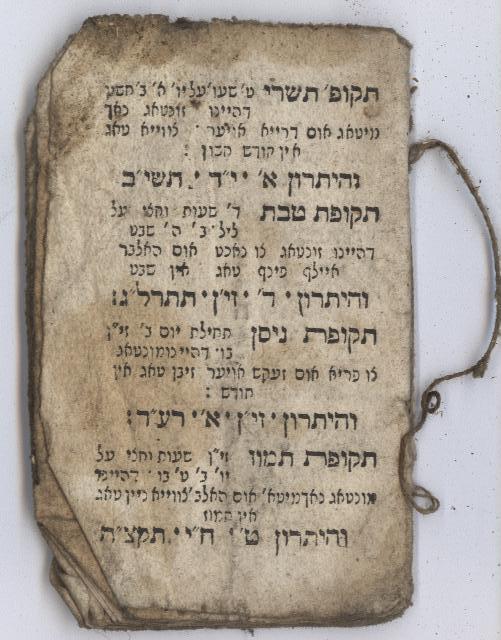 תקופ׳ תשרי ט׳ שעו׳ על יו׳ א׳ ב׳ חשע
דהיינו זונטאג נאך
מיטאג אום דרייא אויער · לווייא טאג
אין חודש חשון :
והיתרון א׳ · י״ד · תשי״ב
תקופת טבת ד׳ שעות וחצי על
ליל ב׳ ה׳ שבט
דהיינו זונטאג לו נאכט אום האלבר
איילף פינף טאג אין שבט
והיתרון · ד׳ · זי״ן · תתרל״ג:
תקופת ניסן תחילת יום ב׳ זי״ן
בו דהיינו מונטאג
לו פריא אום זעקש אויער זיבן טאג אין
חודש :
והיתרון · זי״ן · א׳ · רע״ד:
תקופת תמוז זי״ן שעות וחצי על
יו׳ ב׳ ט׳ בו · דהיינו
מונטאג נאך מיטא׳ אום האלב לווייא ניין טאג
אין תמוז
והיתרון ט׳ · ח״י · תקצ״ה